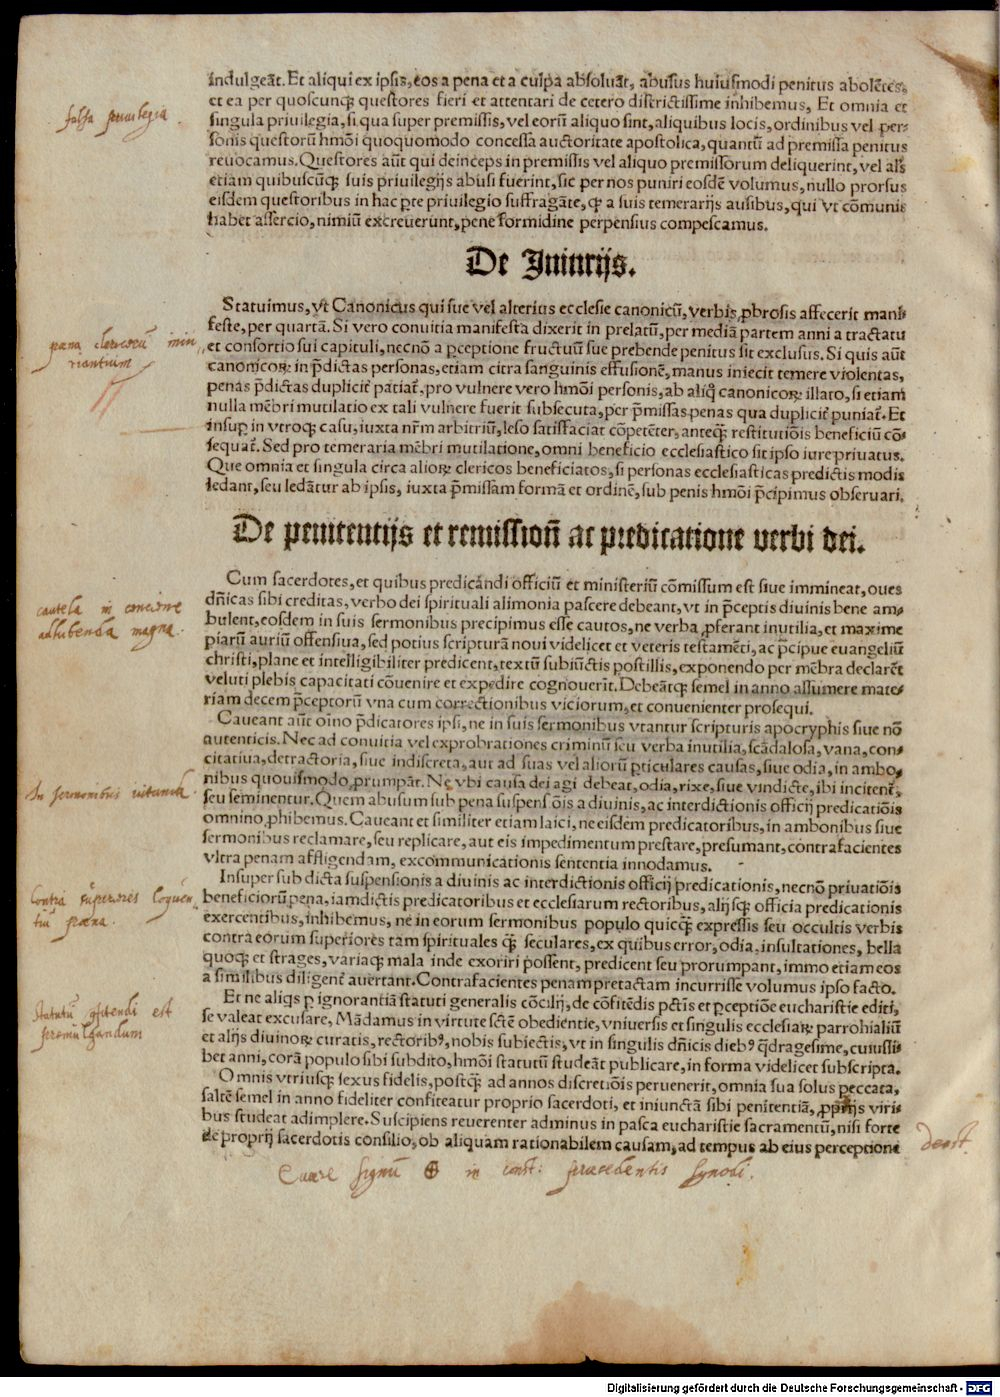 indulgeãt. Et aliqui ex ipsis, eos a pena et a culpa absoluãt, abusus huiusmodi penitus abolẽtes,
et ea per quoscunqꝫ questores fieri et attentari de cetero districtissime inhibemus, Et omnia et
falsa priuilegia.
singula priuilegia, si qua super premissis, vel eorũ aliquo sint, aliquibus locis, ordinibus vel per⸗
sonis questorũ hmõi quoquomodo concessa auctoritate apostolica, quantũ ad premissa penitus
reuocamus. Questores aũt qui deinceps in premissis vel aliquo premissorum deliquerint, vel als
etiam quibuscũqꝫ suis priuilegijs abusi fuerint, sic per nos puniri eosdẽ volumus, nullo prorsus
eisdem questoribus in hac pte priuilegio suffragãte, qꝫ a suis temerarijs ausibus, qui vt cõmunis
habet assercio, nimiũ excreuerunt, pene formidine perpensius compescamus.
De Iniurijs.
Statuimus, vt Canonicus qui sue vel alterius ecclesie canonicũ, verbis ꝓbrosis affecerit mani⸗
feste, per quartã. Si vero conuitia manifesta dixerit in prelatũ, per mediã partem anni a tractatu
pœna clericorũ iniu
riantium
et consortio sui capituli, necnõ a ꝑceptione fructuũ sue prebende penitus sit exclusus. Si quis aũt
canonicoꝝ in p̃dictas personas, etiam citra sanguinis effusionẽ, manus iniecit temere violentas,
penas p̃dictas duplicit̃ patiat̃. pro vulnere vero hmõi personis, ab aliq̃ canonicoꝝ illato, si etiam
nulla mẽbri mutilatio ex tali vulnere fuerit subsecuta, per p̃missas penas qua duplicit̃ puniat̃. Et
insuꝑ in vtroqꝫ casu, iuxta nr̃m arbitriũ, leso satisfaciat cõpetẽter, anteqꝫ restitutiõis beneficiũ cõ⸗
sequat̃. Sed pro temeraria mẽbri mutilatione, omni beneficio ecclesiastico sit ipso iure priuatus.
Que omnia et singula circa alioꝝ clericos beneficiatos, si personas ecclesiasticas predictis modis
ledant, seu ledãtur ab ipsis, iuxta p̃missam formã et ordinẽ, sub penis hmõi p̃cipimus obseruari.
De penitentijs et remissioñ ac predicatione verbi dei.
Cum sacerdotes, et quibus predicandi officiũ et ministeriũ cõmissum est siue immineat, oues
cautela in concione
adhibenda magna.
dñicas sibi creditas, verbo dei spirituali alimonia pascere debeant, vt in p̃ceptis diuinis bene am⸗
bulent, eosdem in suis sermonibus precipimus esse cautos, ne verba ꝓferant inutilia, et maxime
piarũ auriũ offensiua, sed potius scripturã noui videlicet et veteris testamẽti, ac p̃cipue euangeliũ
christi, plane et intelligibiliter predicent, textũ subiũctis postillis, exponendo per mẽbra declarẽt
veluti plebis capacitati cõuenire et expedire cognouerĩt. Debeãtqꝫ semel in anno assumere mate⸗
riam decem p̃ceptorũ vna cum correctionibus viciorum, et conuenienter prosequi.
Caueant aũt oĩno p̃dicatores ipsi, ne in suis sermonibus vtantur scripturis apocryphis siue nõ
autenticis. Nec ad conuitia vel exprobrationes criminũ seu verba inutilia, scãdalosa, vana, con⸗
citatiua, detractoria, siue indiscreta, aut ad suas vel aliorũ ꝑticulares causas, siue odia, in ambo⸗
In sermonibus uitanda.
nibus quouismodo ꝓrumpãt. Ne vbi causa dei agi debeat, odia, rixe, siue vindicte, ibi incitent̃,
seu seminentur. Quem abusum sub pena suspensõis a diuinis, ac interdictionis officij predicatiõis
omnino ꝓhibemus. Caueant et similiter etiam laici, ne eisdem predicatoribus, in ambonibus siue
sermonibus reclamare, seu replicare, aut eis impedimentum prestare, presumant, contrafacientes
vltra penam affligendam, excommunicationis sententia innodamus.
Insuper sub dicta suspensionis a diuinis ac interdictionis officij predicationis, necnõ priuatiõis
Contra superiores loquen
tiũ pœna.
beneficiorũ pena, iamdictis predicatoribus et ecclesiarum rectoribus, alijsqꝫ officia predicationis
exercentibus, inhibemus, ne in eorum sermonibus populo quicqꝫ expressis seu occultis verbis
contra eorum superiores tam spirituales qꝫ̃ seculares, ex quibus error, odia, insultationes, bella
quoqꝫ et strages, variaqꝫ mala inde exoriri possent, predicent seu prorumpant, immo etiam eos
a similibus diligent̃ auertant. Contrafacientes penam pretactam incurrisse volumus ipso facto.
Et ne aliqs ꝑ ignorantiã statuti generalis cõcilij, de cõfitẽdis pctĩs et ꝑceptiõe eucharistie editi,
Statutũ cõfitendi est
promulgandum
se valeat excusare, Mãdamus in virtute sctẽ obedientie, vniuersis et singulis ecclesiaꝝ parrohialiũ
et alijs diuinoꝝ curatis, rectoribꝰ, nobis subiectis, vt in singulis dñicis diebꝰ q̃dragesime, cuiusli⸗
bet anni, corã populo sibi subdito, hmõi statutũ studeãt publicare, in forma videlicet subscripta.
Omnis vtriusqꝫ sexus fidelis, postqꝫ̃ ad annos discretiõis peruenerit, omnia sua solus peccata,
saltẽ semel in anno fideliter confiteatur proprio sacerdoti, et iniunctã sibi penitentiã, ꝓprijs viri⸗
bus studeat adimplere. Suscipiens reuerenter adminus in pasca eucharistie sacramentũ, nisi forte
de proprij sacerdotis consilio, ob aliquam rationabilem causam, ad tempus ab eius perceptione
deest.
Quære signũ ⊕ in const: præcedentis synodi.
Digitalisierung gefördert durch die Deutsche Forschungsgemeinschaft - DFG